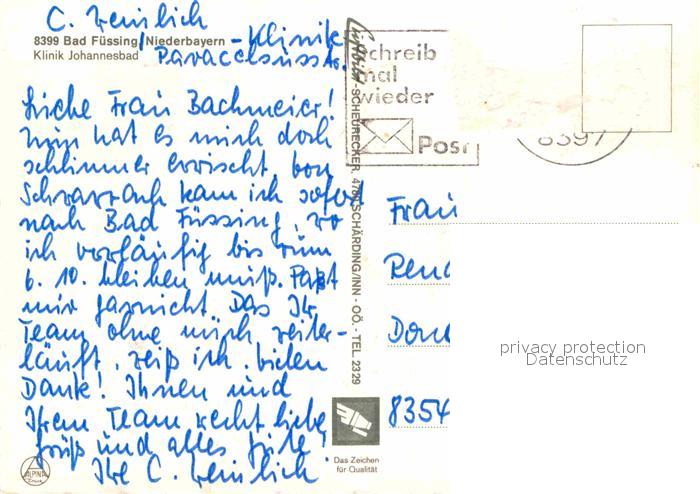 C. Weinlich
8399 Bad Füssing/Niederbayern - Klinik
Klinik Johannesbad Paracelsusstr.
Liebe Frau Bachmeier!
Nun hat es mich doch
schlimmer erwischt, von
kam ich sofort
nach Bad Füssing, wo
ich vorläufig bis zum
6. 10. bleiben muß. Paßt
mir garnicht. Das Ihr
Team ohne mich weiter-
läuft, weiß ich. Vielen
Dank! Ihnen und
Ihrem Team recht liebe
Grüß und alles Gute!
Ihre C. Weinlich
ALPINA
Luftbild-SCHEURECKER, 4780 SCHÄRDING/INN - OÖ. - TEL. 2329
Schreib
mal
wieder
Post
8397
Frau
8354
privacy protection
Datenschutz
Das Zeichen
für Qualität